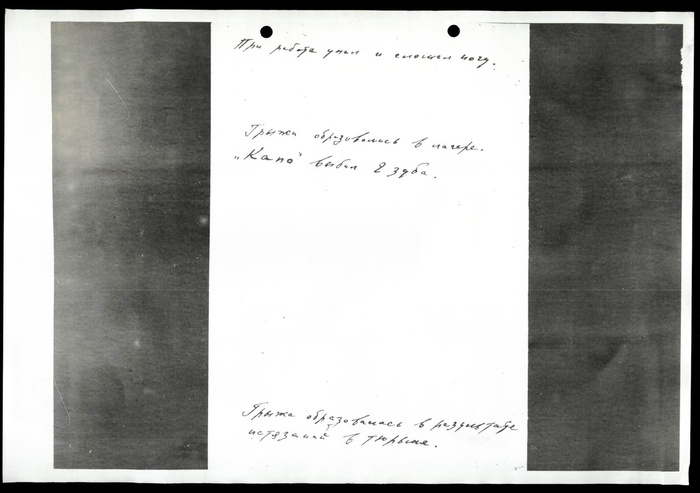 При работе упал и сломал ногу.
Грыжи образовались в лагере.
„Капо" выбил 2 зуба.
Грыжа образовалась в результате
истязаний в тюрьме.